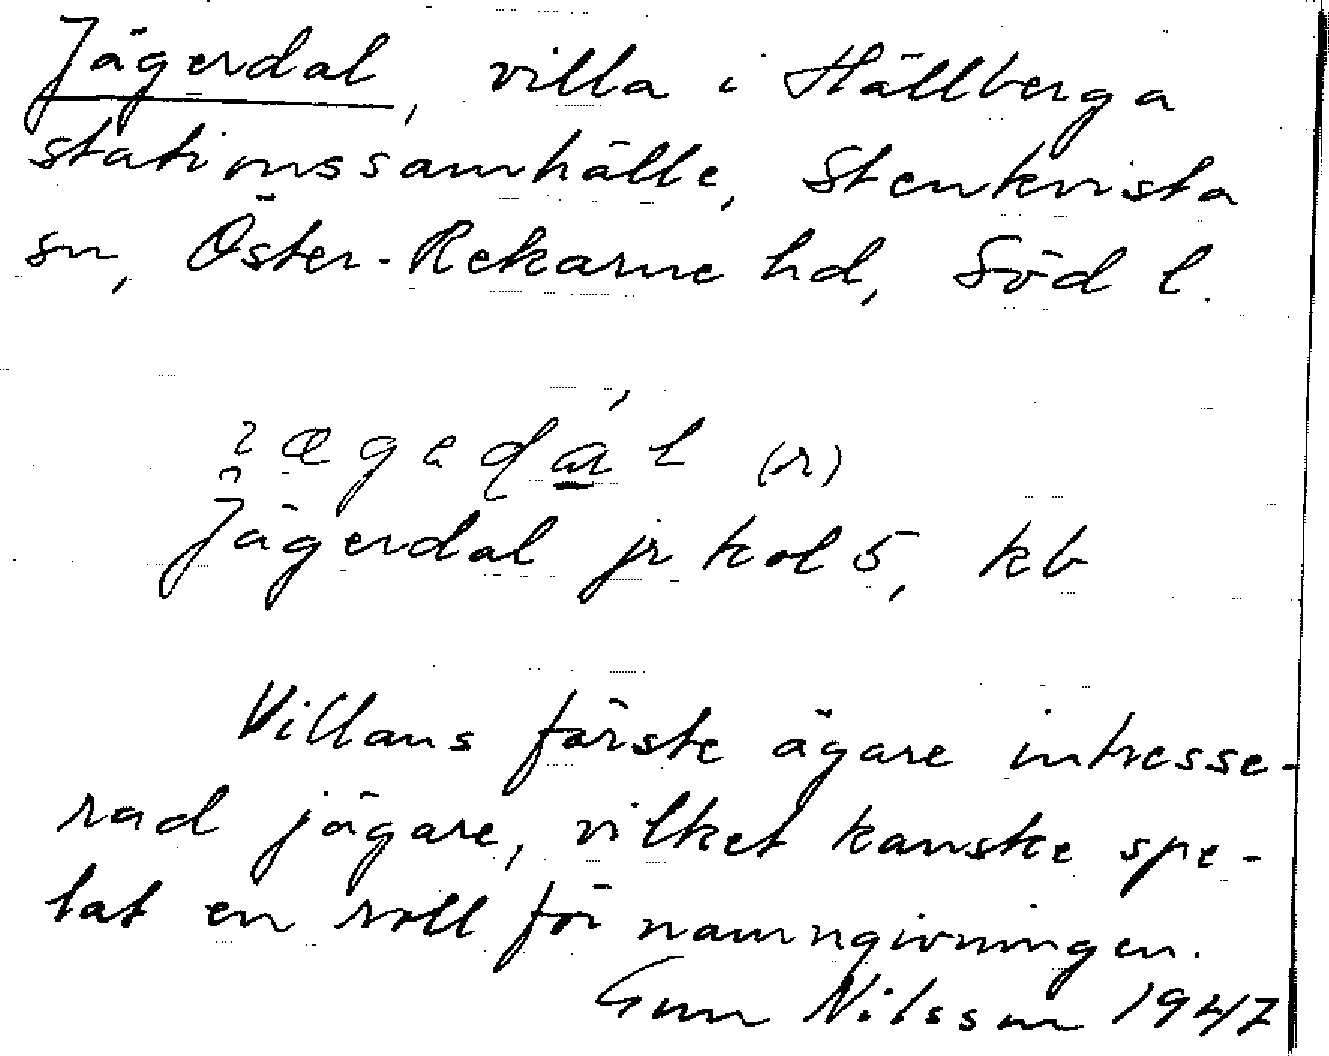 Jägerdal, villa i Hällberga
stationssamhälle, Stenkvista
sn, Öster-Rekarne hd, Söd l.
(r)
Jägerdal jr kol 5, kb
Villans förste ägare intresse-
rad jägare, vilket kanske spe-
lat en roll för namngivningen.
Gun Nilsson 1947